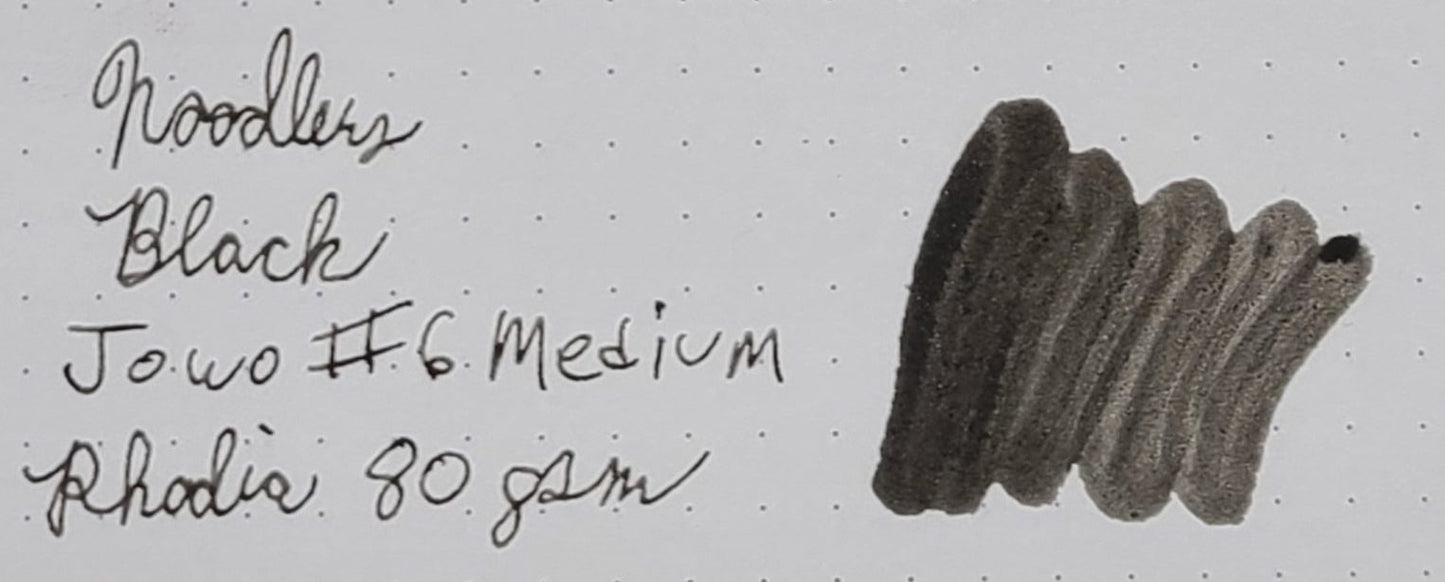 Noodlers
Black
Jowo #6 Medium
Rhodia 80 gsm